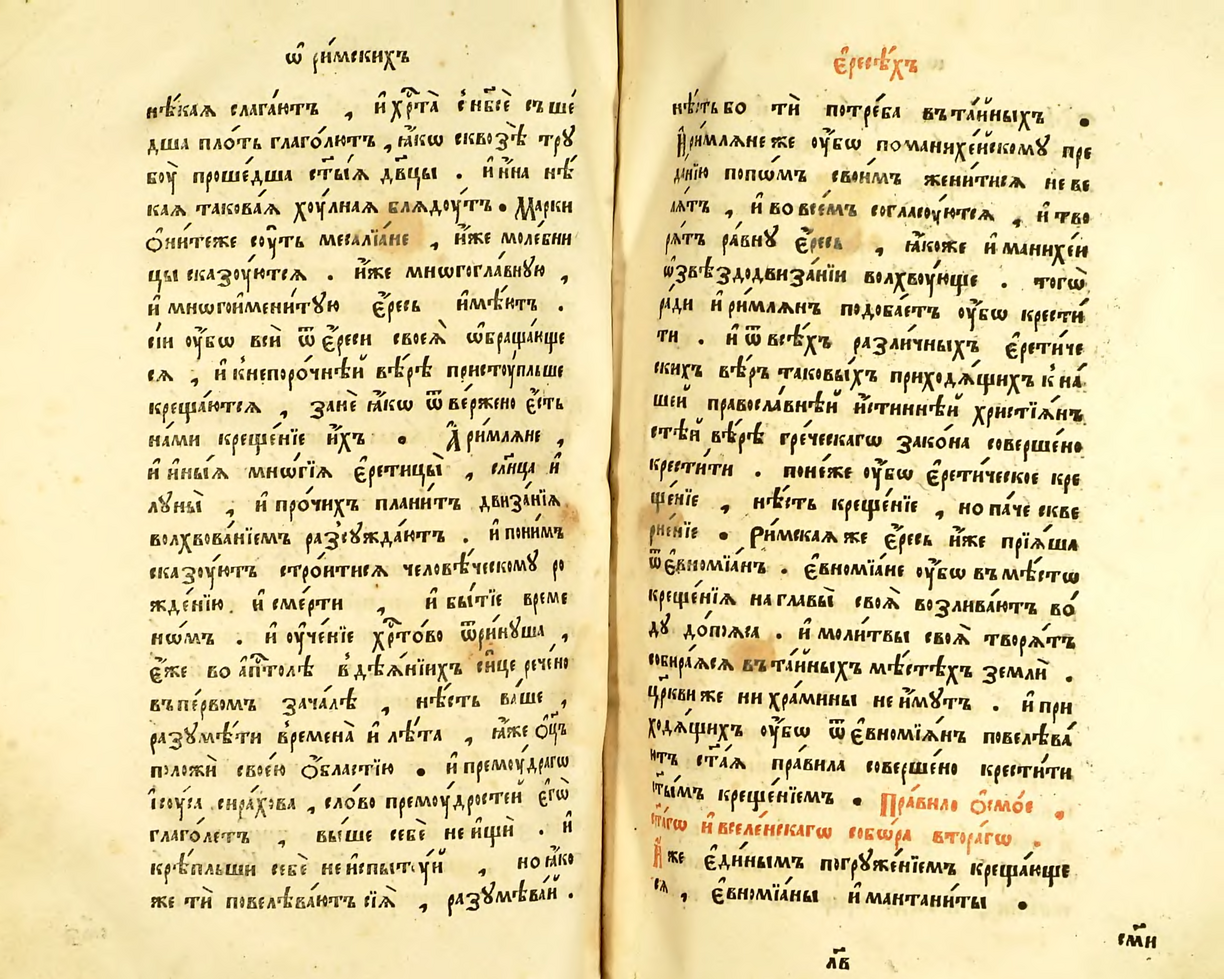 ѿ ри́мскихъ
нѣ́каѧ слага́ютъ , и҆ хр҇та̀ с̾ нб҃сѐ съше́
дша пло́ть глаго́лютъ , ꙗ҆́кѡ сквозѣ̀ трꙋ
боу̀ проше́дша ст҃ы́ѧ дв҃цы . и҆ и҆́на нѣ́
каѧ такова́ѧ хоу́лнаѧ блѧдоу́тъ • Марки
ѻ҆ни́теже соу́ть месалїа́не , и҆̀же моле́бни
цы сказоу́ютсѧ . и҆̀же мнѡгогла́внꙋю ,
и҆ мнѡгоимени́тꙋю є҆́ресь и҆мѣ́ютъ .
сїи оу҆́бѡ всѝ ѿ є҆́реси своеѧ̀ ѡ҆браща́юще
сѧ , и҆ к̾непоро́чнѣй вѣ́рѣ пристоу́пльше
креща́ютсѧ , занѐ ꙗ҆́кѡ ѿве́ржено є҆́сть
на́ми креще́нїе и҆́хъ • А҆ ри́млѧне ,
и҆ и҆ны́ѧ мнѡ́гїѧ є҆ретицы̀ , сл҃нца и҆
лꙋны̀ , и҆ про́чихъ плани́тъ двиза́нїѧ
волхвова́нїемъ разсꙋжда́ютъ . и҆ пони́мъ
сказоу́ютъ стро́итисѧ человѣ́ческомꙋ ро
жде́нїю . и҆ сме́рти , и҆ бытїѐ време
нѡ́мъ . и҆ оу҆че́нїе хр҇то́во ѿри́нꙋша ,
є҆́же во а҆п҇толѣ в̾дѣѧ́нїихъ си́це рече́но
въпе́рвомъ зача́лѣ , нѣ́сть ва́ше ,
разꙋмѣ́ти в̾ремена̀ и҆ лѣ́та , ꙗ҆̀же ѻ҆ц҃ъ
положѝ свое́ю ѻ҆́бластїю • и҆ премоу́драгѡ
і҆соу́са сира́хова , сло́во премоу́дростей є҆гѡ̀
глаго́летъ , вы́ше себѐ не и҆щѝ . и҆
крѣ́пльши себѐ не испытоу́й , но ꙗ҆́ко
же тѝ повелѣва́ютъ сїѧ̀ , разꙋмѣва́й .
є҆́ресѣхъ
нѣ́сть бо тѝ потре́ба въ та́йныхъ •
И҆ ри́млѧне же оу҆́бѡ по манихе́йскомꙋ пре
да́нїю попѡ́мъ свои́мъ жени́тисѧ не ве
лѧ́тъ , и҆ во все́мъ согласоу́ютсѧ , и҆ тво
рѧ́тъ ра́внꙋ є҆́ресь , ꙗ҆́коже и҆ манихе́и
ѡ҆ звѣздодвиза́нїи волхвоу́юще . тогѡ̀
ра́ди и҆ ри́млѧнъ подоба́етъ оу҆́бѡ крести́
ти . и҆ ѿ всѣ́хъ разли́чныхъ є҆рети́че
скихъ вѣ́ръ таковы́хъ приходѧ́щихъ к̾ на́
шей правосла́внѣй и҆́стиннѣй христїѧ́нъ
стѣй вѣ́рѣ гре́ческагѡ зако́на соверше́но
крести́ти . поне́же оу҆́бѡ є҆рети́ческое кре
ще́нїе , нѣ́сть креще́нїе , но па́че скве
рне́нїе • Ри́мскаѧ же є҆́ресь и҆̀же прїѧ́ша
ѿ є҆вномїа́нъ . є҆вномїа́не оу҆́бѡ въ мѣ́стѡ
креще́нїѧ на главы̀ своѧ̀ возлива́ютъ во́
дꙋ до́поѧса . и҆ моли́твы своѧ̀ творѧ́тъ
собира́ѧсѧ въ та́йныхъ мѣ́стѣхъ землѝ .
цр҃кви же ни хра́мины не и҆́мꙋтъ . и҆ при
ходѧ́щихъ оу҆́бѡ ѿ є҆вномїѧ́нъ повелѣва́
итъ ст҃а́ѧ пра́вила соверше́но крести́ти
ст҃ы́мъ креще́нїемъ • Пра́вило ѻ҆смо́е ,
ст҃а́гѡ и҆ вселе́нскагѡ собо́ра втора́гѡ .
И҆́же є҆ди́нымъ погрꙋже́нїемъ креща́юще
сѧ , є҆вномїа́ны и҆ мантани́ты •
л҃в
сми